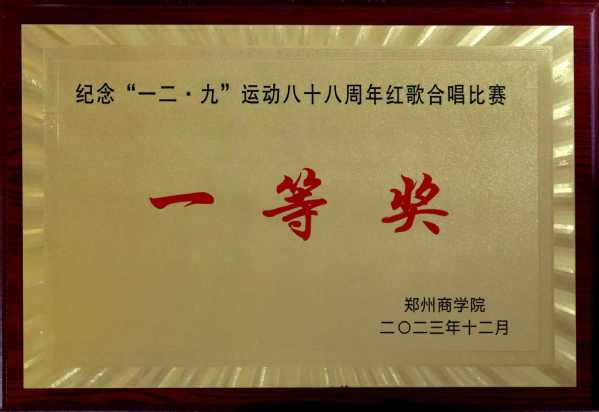 纪念“一二·九”运动八十八周年红歌合唱比赛
一等奖
郑州商学院
二〇二三年十二月